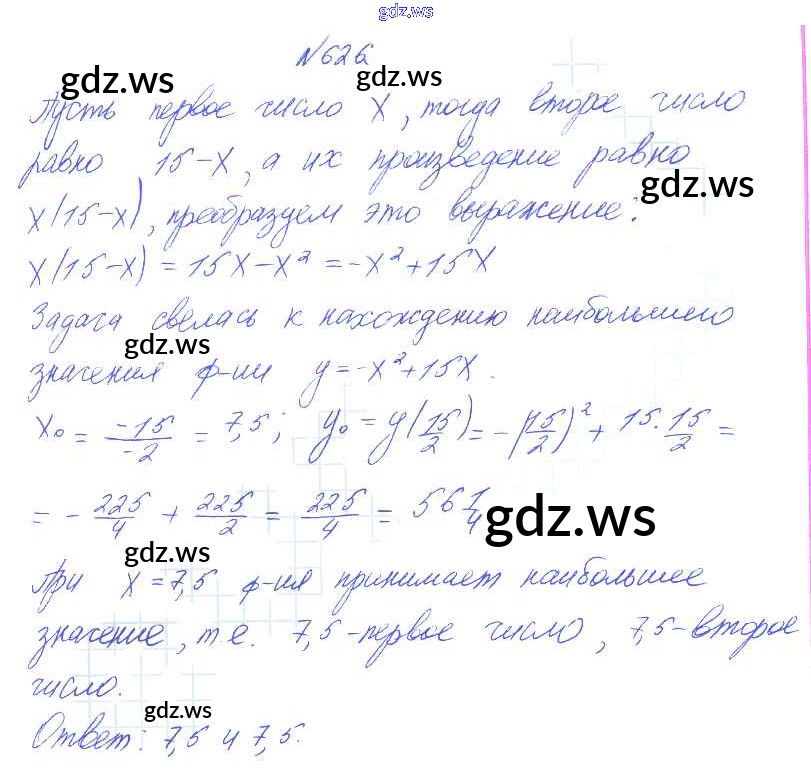 gdz.ws
№626
gdz.ws gdz.ws
Пусть первое число x, тогда второе число
равно 15-x, а их произведение равно
gdz.ws
x(15-x), преобразуем это выражение:
x(15-x) = 15x-x² = -x²+15x
Задача свелась к нахождению наибольшего
gdz.ws
значения ф-ии y=-x²+15x.
x₀ = -15/-2 = 7,5; y₀ = y(15/2) = -(15/2)² + 15·15/2 =
= -225/4 + 225/2 = 225/4 = 56 1/4
gdz.ws
gdz.ws
При x=7,5 ф-ия принимает наибольшее
значение, т.е. 7,5-первое число, 7,5-второе
число.
gdz.ws
Ответ: 7,5 и 7,5.